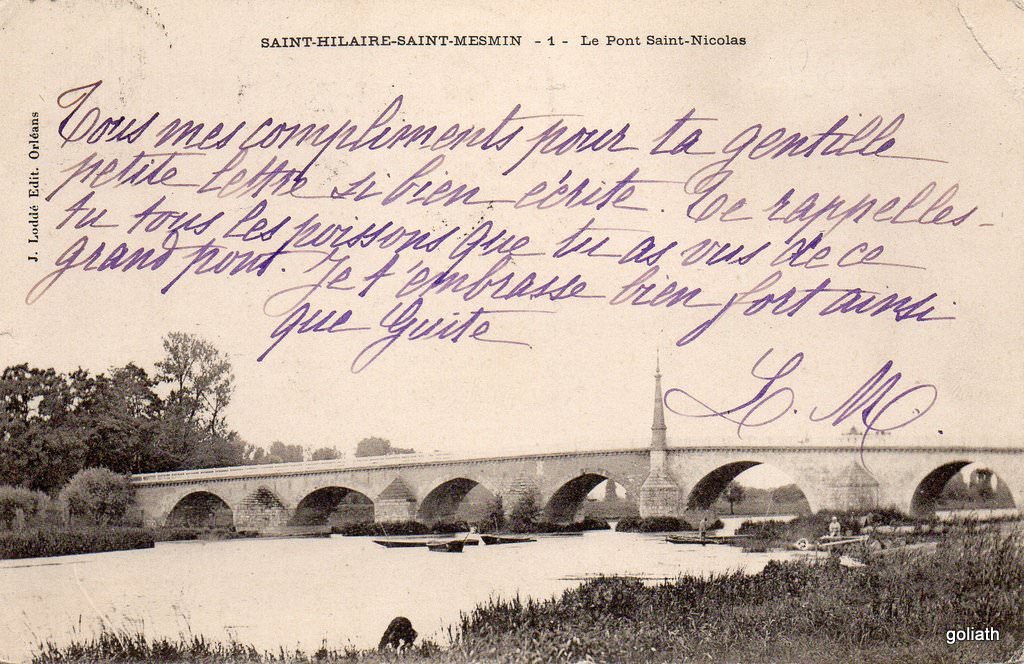 SAINT-HILAIRE-SAINT-MESMIN - 1 - Le Pont Saint-Nicolas
J. Loddé Edit. Orléans
Tous mes compliments pour ta gentille
petite lettre si bien écrite. Te rappelles-
tu tous les poissons que tu as vus de ce
grand pont. Je t'embrasse bien fort ainsi
que Guite
L. M.
goliath